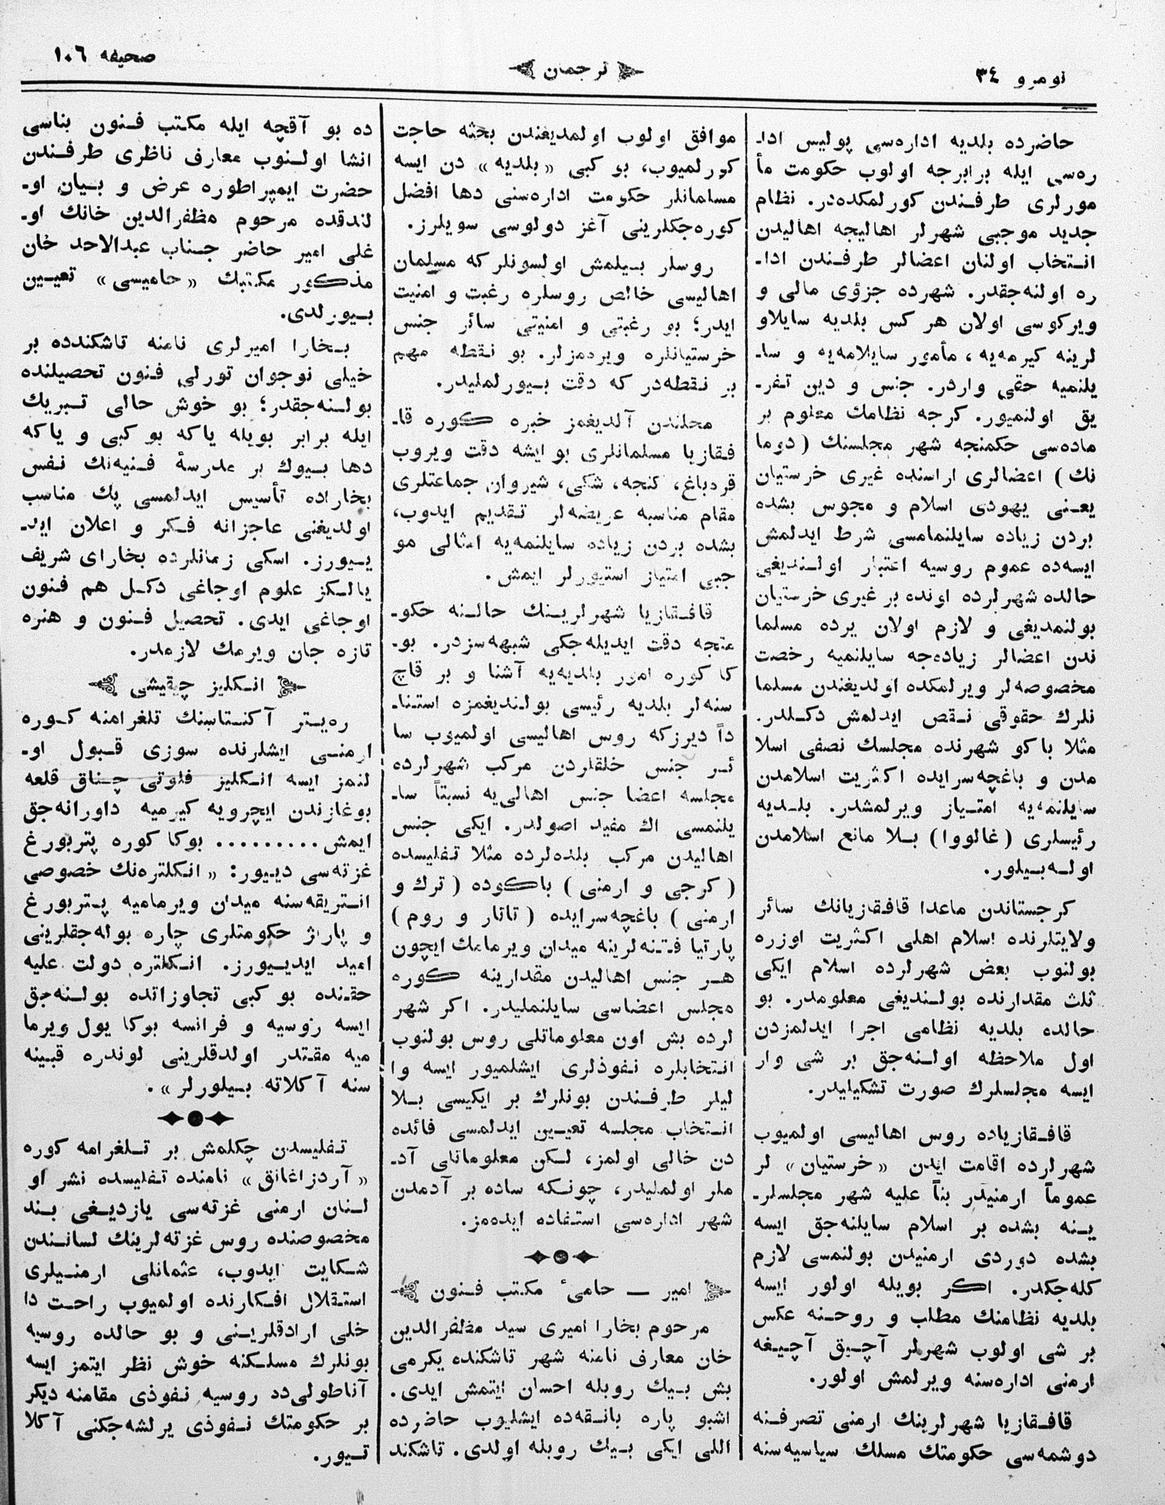 نومرو ٣٤
ترجمان
صحيفه ١٠٦
حاضرده بلديه اداره‌سى پوليس ادا-
ره‌سى ايله برابرجه اولوب حكومت مأ
مورلرى طرفندن كورلمكده‌در. نظام
جديد موجبى شهرلر اهاليجه اهاليدن
انتخاب اولنان اعضالر طرفندن ادا-
ره اولنه‌جقدر. شهرده جزؤى مالى و
ويركوسى اولان هر كس بلديه سايلاو
لرينه كيرمه‌يه، مأمور سايلامه‌يه و سا-
يلنميه حقى واردر. جنس و دين تفر-
يق اولنميور. كرجه نظامك معلوم بر
ماده‌سى حكمنجه شهر مجلسنك (دوما
نك) اعضالرى اراسنده غيرى خرستيان
يعنى يهودى اسلام و مجوس بشده
بردن زياده سايلنمامسى شرط ايدلمش
ايسه‌ده عموم روسيه اعتبار اولنديغى
حالده شهرلرده اونده بر غيرى خرستيان
بولنمديغى و لازم اولان يرده مسلما
ندن اعضالر زياده‌جه سايلنميه رخصت
مخصوصه‌لر ويرلمكده اولديغندن مسلما
نلرك حقوقى نقص ايدلمش دكلدر.
مثلا باكو شهرنده مجلسك نصفى اسلا
مدن و باغچه‌سرايده اكثريت اسلامدن
سايلنمه‌يه امتياز ويرلمشدر. بلديه
رئيسلرى (غالووا) بلا مانع اسلامدن
اوله‌بيلور.
كرجستاندن ماعدا قافقازيانك سائر
ولايتلرنده اسلام اهلى اكثريت اوزره
بولنوب بعض شهرلرده اسلام ايكى
ثلث مقدارنده بولنديغى معلومدر. بو
حالده بلديه نظامى اجرا ايدلمزدن
اول ملاحظه اولنه‌جق بر شى وار
ايسه مجلسلرك صورت تشكيليدر.
قافقازياده روس اهاليسى اولميوب
شهرلرده اقامت ايدن «خرستيان» لر
عموماً ارمنيدر بناً عليه شهر مجلسلر-
ينه بشده بر اسلام سايلنه‌جق ايسه
بشده دوردى ارمنيدن بولنمسى لازم
كله‌جكدر. اكر بويله اولور ايسه
بلديه نظامنك مطلب و روحنه عكس
بر شى اولوب شهرلر آچيق آچيغه
ارمنى اداره‌سنه ويرلمش اولور.
قافقازيا شهرلرينك ارمنى تصرفنه
دوشمه‌سى حكومتك مسلك سياسيه‌سنه
موافق اولوب اولمديغندن بحثه حاجت
كورلميوب، بو كبى «بلديه» دن ايسه
مسلمانلر حكومت اداره‌سنى دها افضل
كوره‌جكلرينى آغز دولوسى سويلرز.
روسلر بيلمش اولسونلركه مسلمان
اهاليسى خالص روسلره رغبت و امنيت
ايدر؛ بو رغبتى و امنيتى سائر جنس
خرستيانلره ويره‌مزلر. بو نقطه مهم
بر نقطه‌در كه دقت بيورلمليدر.
محلندن آلديغمز خبره كوره قا-
فقازيا مسلمانلرى بو ايشه دقت ويروب
قره‌باغ، كنجه، شكى، شيروان جماعتلرى
مقام مناسبه عريضه‌لر تقديم ايدوب،
بشده بردن زياده سايلنمه‌يه امثالى مو
جبى امتياز استيورلر ايمش.
قافقازيا شهرلرينك حالنه حكو-
متجه دقت ايديله‌جكى شبهه‌سزدر. بو-
كا كوره امور بلديه‌يه آشنا و بر قاچ
سنه‌لر بلديه رئيسى بولنديغمزه استنا-
داً ديرزكه روس اهاليسى اولميوب سا
ئر جنس خلقلردن مركب شهرلرده
مجلسه اعضا جنس اهالى‌يه نسبتاً سا-
يلنمسى اك مفيد اصولدر. ايكى جنس
اهاليدن مركب بلده‌لرده مثلا تفليسده
(كرجى و ارمنى) باكوده (ترك و
ارمنى) باغچه‌سرايده (تاتار و روم)
پارتيا فتنه‌لرينه ميدان ويرمامك ايچون
هر جنس اهاليدن مقدارينه كوره
مجلس اعضاسى سايلنمليدر. اكر شهر
لرده بش اون معلوماتلى روس بولنوب
انتخابلره نفوذلرى ايشلميور ايسه وا
ليلر طرفندن بونلرك بر ايكيسى بلا
انتخاب مجلسه تعيين ايدلمسى فائده
دن خالى اولمز، لكن معلوماتلى آد-
ملر اولمليدر، چونكه ساده بر آدمدن
شهر اداره‌سى استفاده ايده‌مز.
امير ـــ حامىٔ مكتب فنون
مرحوم بخارا اميرى سيد مظفرالدين
خان معارف نامنه شهر تاشكنده يكرمى
بش بيك روبله احسان ايتمش ايدى.
اشبو پاره بانقه‌ده ايشليوب حاضرده
اللى ايكى بيك روبله اولدى. تاشكند
ده بو آقچه ايله مكتب فنون بناسى
انشا اولنوب معارف ناظرى طرفندن
حضرت ايمپراطوره عرض و بيان او-
لندقده مرحوم مظفرالدين خانك او-
غلى امير حاضر جناب عبدالاحد خان
مذكور مكتبك «حاميسى» تعيين
بيورلدى.
بخارا اميرلرى نامنه تاشكندده بر
خيلى نوجوان تورلى فنون تحصيلنده
بولنه‌جقدر؛ بو خوش حالى تبريك
ايله برابر بويله ياكه بو كبى و ياكه
دها بيوك بر مدرسهٔ فنيه‌نك نفس
بخاراده تأسيس ايدلمسى پك مناسب
اولديغنى عاجزانه فكر و اعلان ايد-
ييورز. اسكى زمانلرده بخاراى شريف
يالكز علوم اوجاغى دكل هم فنون
اوجاغى ايدى. تحصيل فنون و هنره
تازه جان ويرمك لازمدر.
انكليز چيقيشى
ره‌يتر آكنتاسنك تلغرامنه كوره
ارمنى ايشلرنده سوزى قبول او-
لنمز ايسه انكليز فلوتى چناق قلعه
بوغازندن ايچرويه كيرميه داورانه‌جق
ايمش......... بوكا كوره پتربورغ
غزته‌سى ديور: «انكلتره‌نك خصوصى
انتريقه‌سنه ميدان ويرماميه پتربورغ
و پاريژ حكومتلرى چاره بوله‌جقلرينى
اميد ايدييورز. انكلتره دولت عليه
حقنده بو كبى تجاوزاتده بولنه‌جق
ايسه روسيه و فرانسه بوكا يول ويرما
ميه مقتدر اولدقلرينى لوندره قبينه
سنه آكلاته بيلورلر».
تفليسدن چكلمش بر تلغرامه كوره
«آردزاغانق» نامنده تفليسده نشر او
لنان ارمنى غزته‌سى يازديغى بند
مخصوصنده روس غزته‌لرينك لسانندن
شكايت ايدوب، عثمانلى ارمنيلرى
استقلال افكارنده اولميوب راحت دا
خلى ارادقلرينى و بو حالده روسيه
بونلرك مسلكنه خوش نظر ايتمز ايسه
آناطولى‌ده روسيه نفوذى مقامنه ديكر
بر حكومتك نفوذى يرلشه‌جكنى آكلا
تيور.